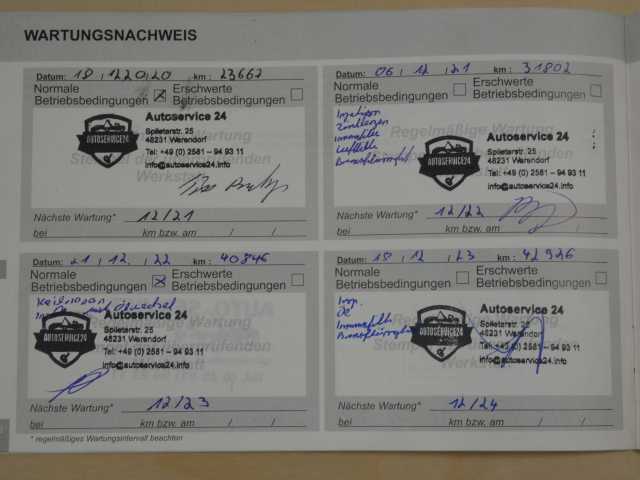 WARTUNGSNACHWEIS
Datum: 18 12 20 20 km: 23662
Normale Betriebsbedingungen
Erschwerte Betriebsbedingungen
AUTOSERVICE24
Autoservice 24
Splieterstr. 25
48231 Warendorf
Tel: +49 (0) 2581 – 94 93 11
info@autoservice24.info
Nächste Wartung* 12/21
bei km bzw. am / /
Datum: 06 12 21 km: 31802
Normale Betriebsbedingungen
Erschwerte Betriebsbedingungen
Inspektion
Zündkerzen
Innenfilter
Luftfilter
Bremsflüssigkeit
AUTOSERVICE24
Autoservice 24
Splieterstr. 25
48231 Warendorf
Tel: +49 (0) 2581 – 94 93 11
info@autoservice24.info
Nächste Wartung* 12/22
bei km bzw. am / /
Datum: 21 12 22 km: 40846
Normale Betriebsbedingungen
Erschwerte Betriebsbedingungen
Ölwechsel
AUTOSERVICE24
Autoservice 24
Splieterstr. 25
48231 Warendorf
Tel: +49 (0) 2581 – 94 93 11
info@autoservice24.info
Nächste Wartung* 12/23
bei km bzw. am / /
Datum: 18 12 23 km: 42926
Normale Betriebsbedingungen
Erschwerte Betriebsbedingungen
Insp.
Öl
Innenfilter
Bremsflüssigkeit
AUTOSERVICE24
Autoservice 24
Splieterstr. 25
48231 Warendorf
Tel: +49 (0) 2581 – 94 93 11
info@autoservice24.info
Nächste Wartung* 12/24
bei km bzw. am / /
* regelmäßiges Wartungsintervall beachten